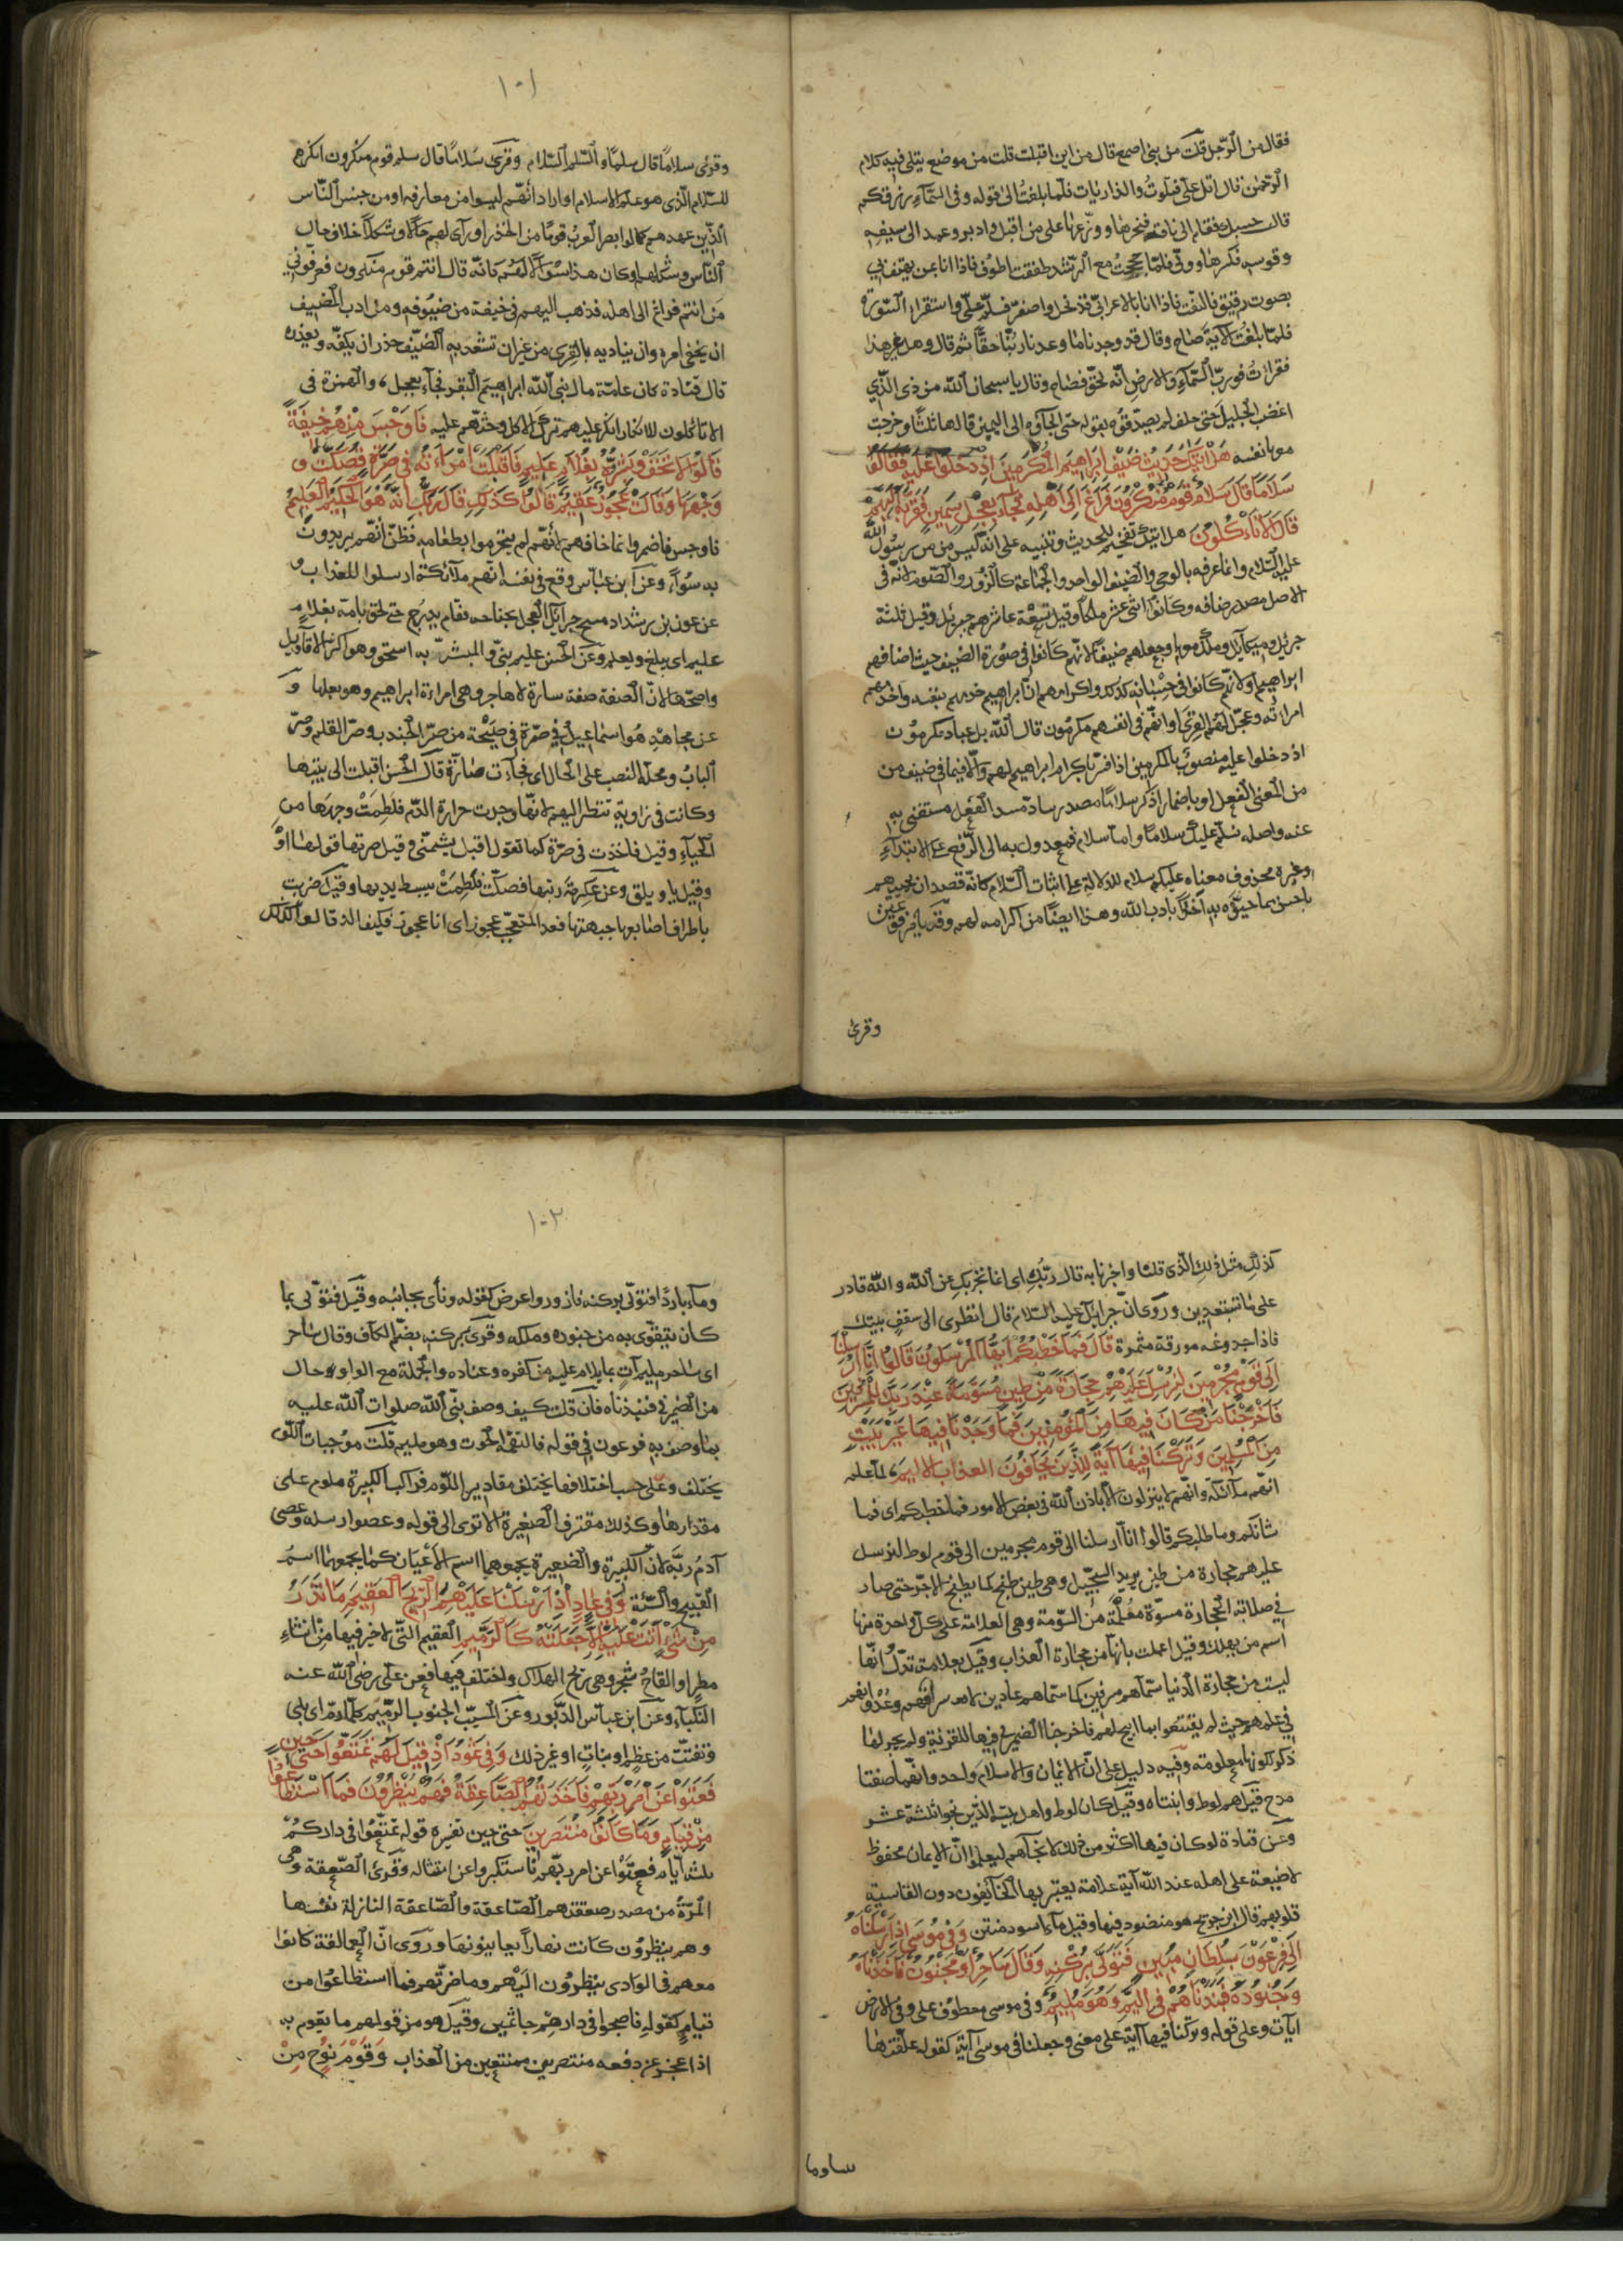 فقال من الرجل قلت من بنى اصمع قال من اين اقبلت قلت من موضع يتلى فيه كلام
الرحمن قال اتل على فتلوت والذاريات فلما بلغت الى قوله وفى السماء رزقكم
قال حسبك فقام الى ناقته فنحرها ووزعها على من اقبل وادبر وعمد الى سيفه
وقوسه فكسرها وولى فلما حججت مع الرشيد طفقت اطوف فاذا انا بمن يهتف بى
بصوت رقيق فالتفت فاذا انا بالاعرابى قد نحل واصفر فسلم على واستقرا السورة
فلما بلغت الآية صاح وقال قد وجدنا ما وعدنا ربنا حقا ثم قال وهل غير هذا
فقرات فورب السماء والارض انه لحق فصاح وقال يا سبحان الله من ذى الذى
اغضب الجليل حتى حلف لم يصدقوه بقوله حتى الجاؤه الى اليمين قالها ثلثا وخرجت
معها نفسه هَلْ اَتٰيكَ حَدِيثُ ضَيْفِ اِبْرَاهِيمَ الْمُكْرَمِينَ اِذْ دَخَلُوا عَلَيْهِ فَقَالُوا
سَلَامًا قَالَ سَلَامٌ قَوْمٌ مُنْكَرُونَ فَرَاغَ اِلَى اَهْلِهِ فَجَاءَ بِعِجْلٍ سَمِينٍ فَقَرَّبَهُ اِلَيْهِمْ
قَالَ اَلَا تَأْكُلُونَ هل اتيك تفخيم للحديث وتنبيه على انه ليس من من رسول الله
عليه السلام وانما عرفه بالوحى والضيف الواحد والجماعة كالزور والصوم لانه فى
الاصل مصدر ضافه وكانوا اثنى عشر ملكا وقيل تسعة عاشرهم جبرئل وقيل ثلثة
جبرئل وميكائل وملك معهما وجعلهم ضيفا لانهم كانوا فى صورة الضيف حيث اضافهم
ابراهيم او لانهم كانوا فى حسبانه كذلك واكرامهم ان ابراهيم خدمهم بنفسه واخدمهم
امراته وعجل لهم القرى او انهم فى انفسهم مكرمون قال الله بل عباد مكرمون
اذ دخلوا عليه منصوب بالمكرمين اذا فسر باكرام ابراهيم لهم والا فبما فى ضيف من
من المعنى الفعل او باضمار اذكر سلاما مصدر ساد مسد الفعل مستغنى به
عنه واصله نسلم عليك سلاما واما سلام فمعدول به الى الرفع على الابتداء
وخبره محذوف معناه عليكم سلام للدلالة على اثبات السلام كانه قصد ان يحييهم
باحسن مما حيوه به اخذا بادب الله وهذا ايضا من اكرامه لهم وقرئ
وقرئ
١٠١
وقرئ سلاما قال سلما والسلم السلام وقرئ سلاما قال سلم قوم منكرون انكرهم
للسلام الذى هو علم الاسلام او اراد انهم ليسوا من معارفه او من جنس الناس
الذين عهدهم كما لو ابصر العرب قوما من الخزر او راى لهم حالا وشكلا خلاف حال
الناس وشكلهم او كان هذا سؤالا لهم كانه قال انتم قوم منكرون فعرفونى
من انتم فراغ الى اهله فذهب اليهم فى خيفة من ضيوفه ومن ادب المضيف
ان يخفى امره وان يباديه بالقرى من غير ان تشعر به الضيف حذر ان يكفه ويعذره
قال قتادة كان عامة مال نبى الله ابراهيم البقر فجاء بعجل والهمزة فى
الا تاكلون للانكار انكر عليهم ترك الاكل وحثهم عليه فَاَوْجَسَ مِنْهُمْ خِيفَةً
قَالُوا لَا تَخَفْ وَبَشَّرُوهُ بِغُلَامٍ عَلِيمٍ فَاَقْبَلَتْ امْرَاَتُهُ فِى صَرَّةٍ فَصَكَّتْ
وَجْهَهَا وَقَالَتْ عَجُوزٌ عَقِيمٌ قَالُوا كَذٰلِكِ قَالَ رَبُّكِ اِنَّهُ هُوَ الْحَكِيمُ الْعَلِيمُ
فاوجس فاضمر وانما خافهم لانهم لم يتحرموا بطعامه فظن انهم يريدون
به سوءا وعن ابن عباس وقع فى نفسه انهم ملائكة ارسلوا للعذاب و
عن عون بن شداد مسح جبرائل العجل بجناحه فقام يدرج حتى لحق بامه بغلام
عليم اى يبلغ ويعلم وعن الحسن عليم نبى والمبشر به اسحق وهو اكثر الاقاويل
واصحها لان الصفة صفة سارة لا هاجر وهى امراة ابراهيم وهو بعلها و
عن مجاهد هو اسماعيل فى صرة فى صيحة من صر الجندب وصر القلم وصر
الباب ومحله النصب على الحال اى فجاءت صارة قال الحسن اقبلت الى بيتها
وكانت فى زاوية تنظر اليهم لانها وجدت حرارة الدم فلطمت وجهها من
الحياء وقيل فاخذت فى صرة كما تقول اقبل يشتمنى وقيل صرتها قولها اوه
وقيل يا ويلتى وعن عكرمة رنتها فصكت فلطمت ببسط يديها وقيل ضربت
باطراف اصابعها جبهتها فعل المتعجب عجوز اى انا عجوز فكيف الد قالوا كذلك
كذلك مثل ذلك الذى قلنا واخبرنا به قال ربك اى انما نخبرك عن الله والله قادر
على ما تستبعدين وروى ان جبرائل عليه السلام قال انظرى الى سقف بيتك
فاذا جذوعه مورقة مثمرة قَالَ فَمَا خَطْبُكُمْ اَيُّهَا الْمُرْسَلُونَ قَالُوا اِنَّا اُرْسِلْنَا
اِلَى قَوْمٍ مُجْرِمِينَ لِنُرْسِلَ عَلَيْهِمْ حِجَارَةً مِنْ طِينٍ مُسَوَّمَةً عِنْدَ رَبِّكَ لِلْمُسْرِفِينَ
فَاَخْرَجْنَا مَنْ كَانَ فِيهَا مِنَ الْمُؤْمِنِينَ فَمَا وَجَدْنَا فِيهَا غَيْرَ بَيْتٍ
مِنَ الْمُسْلِمِينَ وَتَرَكْنَا فِيهَا آيَةً لِلَّذِينَ يَخَافُونَ العذاب الاليم لما علم
انهم ملائكة وانهم لا ينزلون الا باذن الله فى بعض الامور فما خطبكم اى فما
شانكم وما طلبكم قالوا انا ارسلنا الى قوم مجرمين الى قوم لوط لنرسل
عليهم حجارة من طين يريد السجيل وهى طين طبخ كما يطبخ الآجر حتى صار
فى صلابة الحجارة مسومة معلمة من السومة وهى العلامة على كل واحدة منها
اسم من يهلك وقيل اعلمت بانها من حجارة العذاب وقيل بعلامة تدل انها
ليست من حجارة الدنيا سماهم مسرفين كما سماهم عادين لاسرافهم وعدوانهم
فى عملهم حيث لم يقتنعوا بما ابيح لهم فاخرجنا الضمير فى فيها للقرية ولم يجر لها
ذكر لكونها معلومة وفيه دليل على ان الايمان والاسلام واحد وانهما صفتا
مدح قيل هم لوط وابنتاه وقيل كان لوط واهل بيته الذين نجوا ثلثة عشر
وعن قتادة لو كان فيها اكثر من ذلك لانجاهم ليعلموا ان الايمان محفوظ
لا ضيعة على اهله عند الله آية علامة يعتبر بها الخائفون دون القاسية
قلوبهم قال ابن جريج هو منضود فيها وقيل ماء اسود منتن وَفِى مُوسَى اِذْ اَرْسَلْنَاهُ
اِلَى فِرْعَوْنَ بِسُلْطَانٍ مُبِينٍ فَتَوَلَّى بِرُكْنِهِ وَقَالَ سَاحِرٌ اَوْ مَجْنُونٌ فَاَخَذْنَاهُ
وَجُنُودَهُ فَنَبَذْنَاهُمْ فِى الْيَمِّ وَهُوَ مُلِيمٌ وفى موسى معطوف على وفى الارض
آيات وعلى قوله وتركنا فيها آية على معنى وجعلنا فى موسى آية كقوله علفتها
١٠٢
وماء باردا فتولى بركنه فازور واعرض كقوله ونأى بجانبه وقيل فتولى بما
كان يتقوى به من جنوده وملكه وقرئ بركنه بضم الكاف وقال ساحر
اى ساحر مليم آت بما يلام عليه من كفره وعناده والجملة مع الواو حال
من الضمير فى فنبذناه فان قلت كيف وصف نبى الله صلوات الله عليه
بما وصف به فرعون فى قوله فالتقمه الحوت وهو مليم قلت موجبات اللوم
يختلف وعلى حسب اختلافها يختلف مقادير اللوم فراكب الكبيرة ملوم على
مقدارها وكذلك مقترف الصغيرة الا ترى الى قوله وعصوا رسله وعصى
آدم ربه لان الكبيرة والصغيرة يجمعهما اسم العصيان كما يجمعهما اسم
القبيح والسيئة وَفِى عَادٍ اِذْ اَرْسَلْنَا عَلَيْهِمُ الرِّيحَ الْعَقِيمَ مَا تَذَرُ
مِنْ شَىْءٍ اَتَتْ عَلَيْهِ اِلَّا جَعَلَتْهُ كَالرَّمِيمِ العقيم التى لا خير فيها من انشاء
مطر او القاح شجر وهى ريح الهلاك واختلف فيها فعن على رضى الله عنه
النكباء وعن ابن عباس الدبور وعن المسيب الجنوب الرميم كلما رم اى بلى
وتفتت من عظم او نبات او غير ذلك وَفِى ثَمُودَ اِذْ قِيلَ لَهُمْ تَمَتَّعُوا حَتَّى حِينٍ
فَعَتَوْا عَنْ اَمْرِ رَبِّهِمْ فَاَخَذَتْهُمُ الصَّاعِقَةُ وَهُمْ يَنْظُرُونَ فَمَا اسْتَطَاعُوا
مِنْ قِيَامٍ وَمَا كَانُوا مُنْتَصِرِينَ حتى حين تفسيره قوله تمتعوا فى داركم
ثلثة ايام فعتوا عن امر ربهم فاستكبروا عن امتثاله وقرئ الصعقة وهى
المرة من مصدر صعقتهم الصاعقة والصاعقة النازلة نفسها
وهم ينظرون كانت نهارا يعاينونها وروى ان العمالقة كانوا
معهم فى الوادى ينظرون اليهم وما ضرتهم فما استطاعوا من
قيام كقوله فاصبحوا فى دارهم جاثمين وقيل هو من قولهم ما يقوم به
اذا عجز عن دفعه منتصرين ممتنعين من العذاب وَقَوْمَ نُوحٍ مِنْ